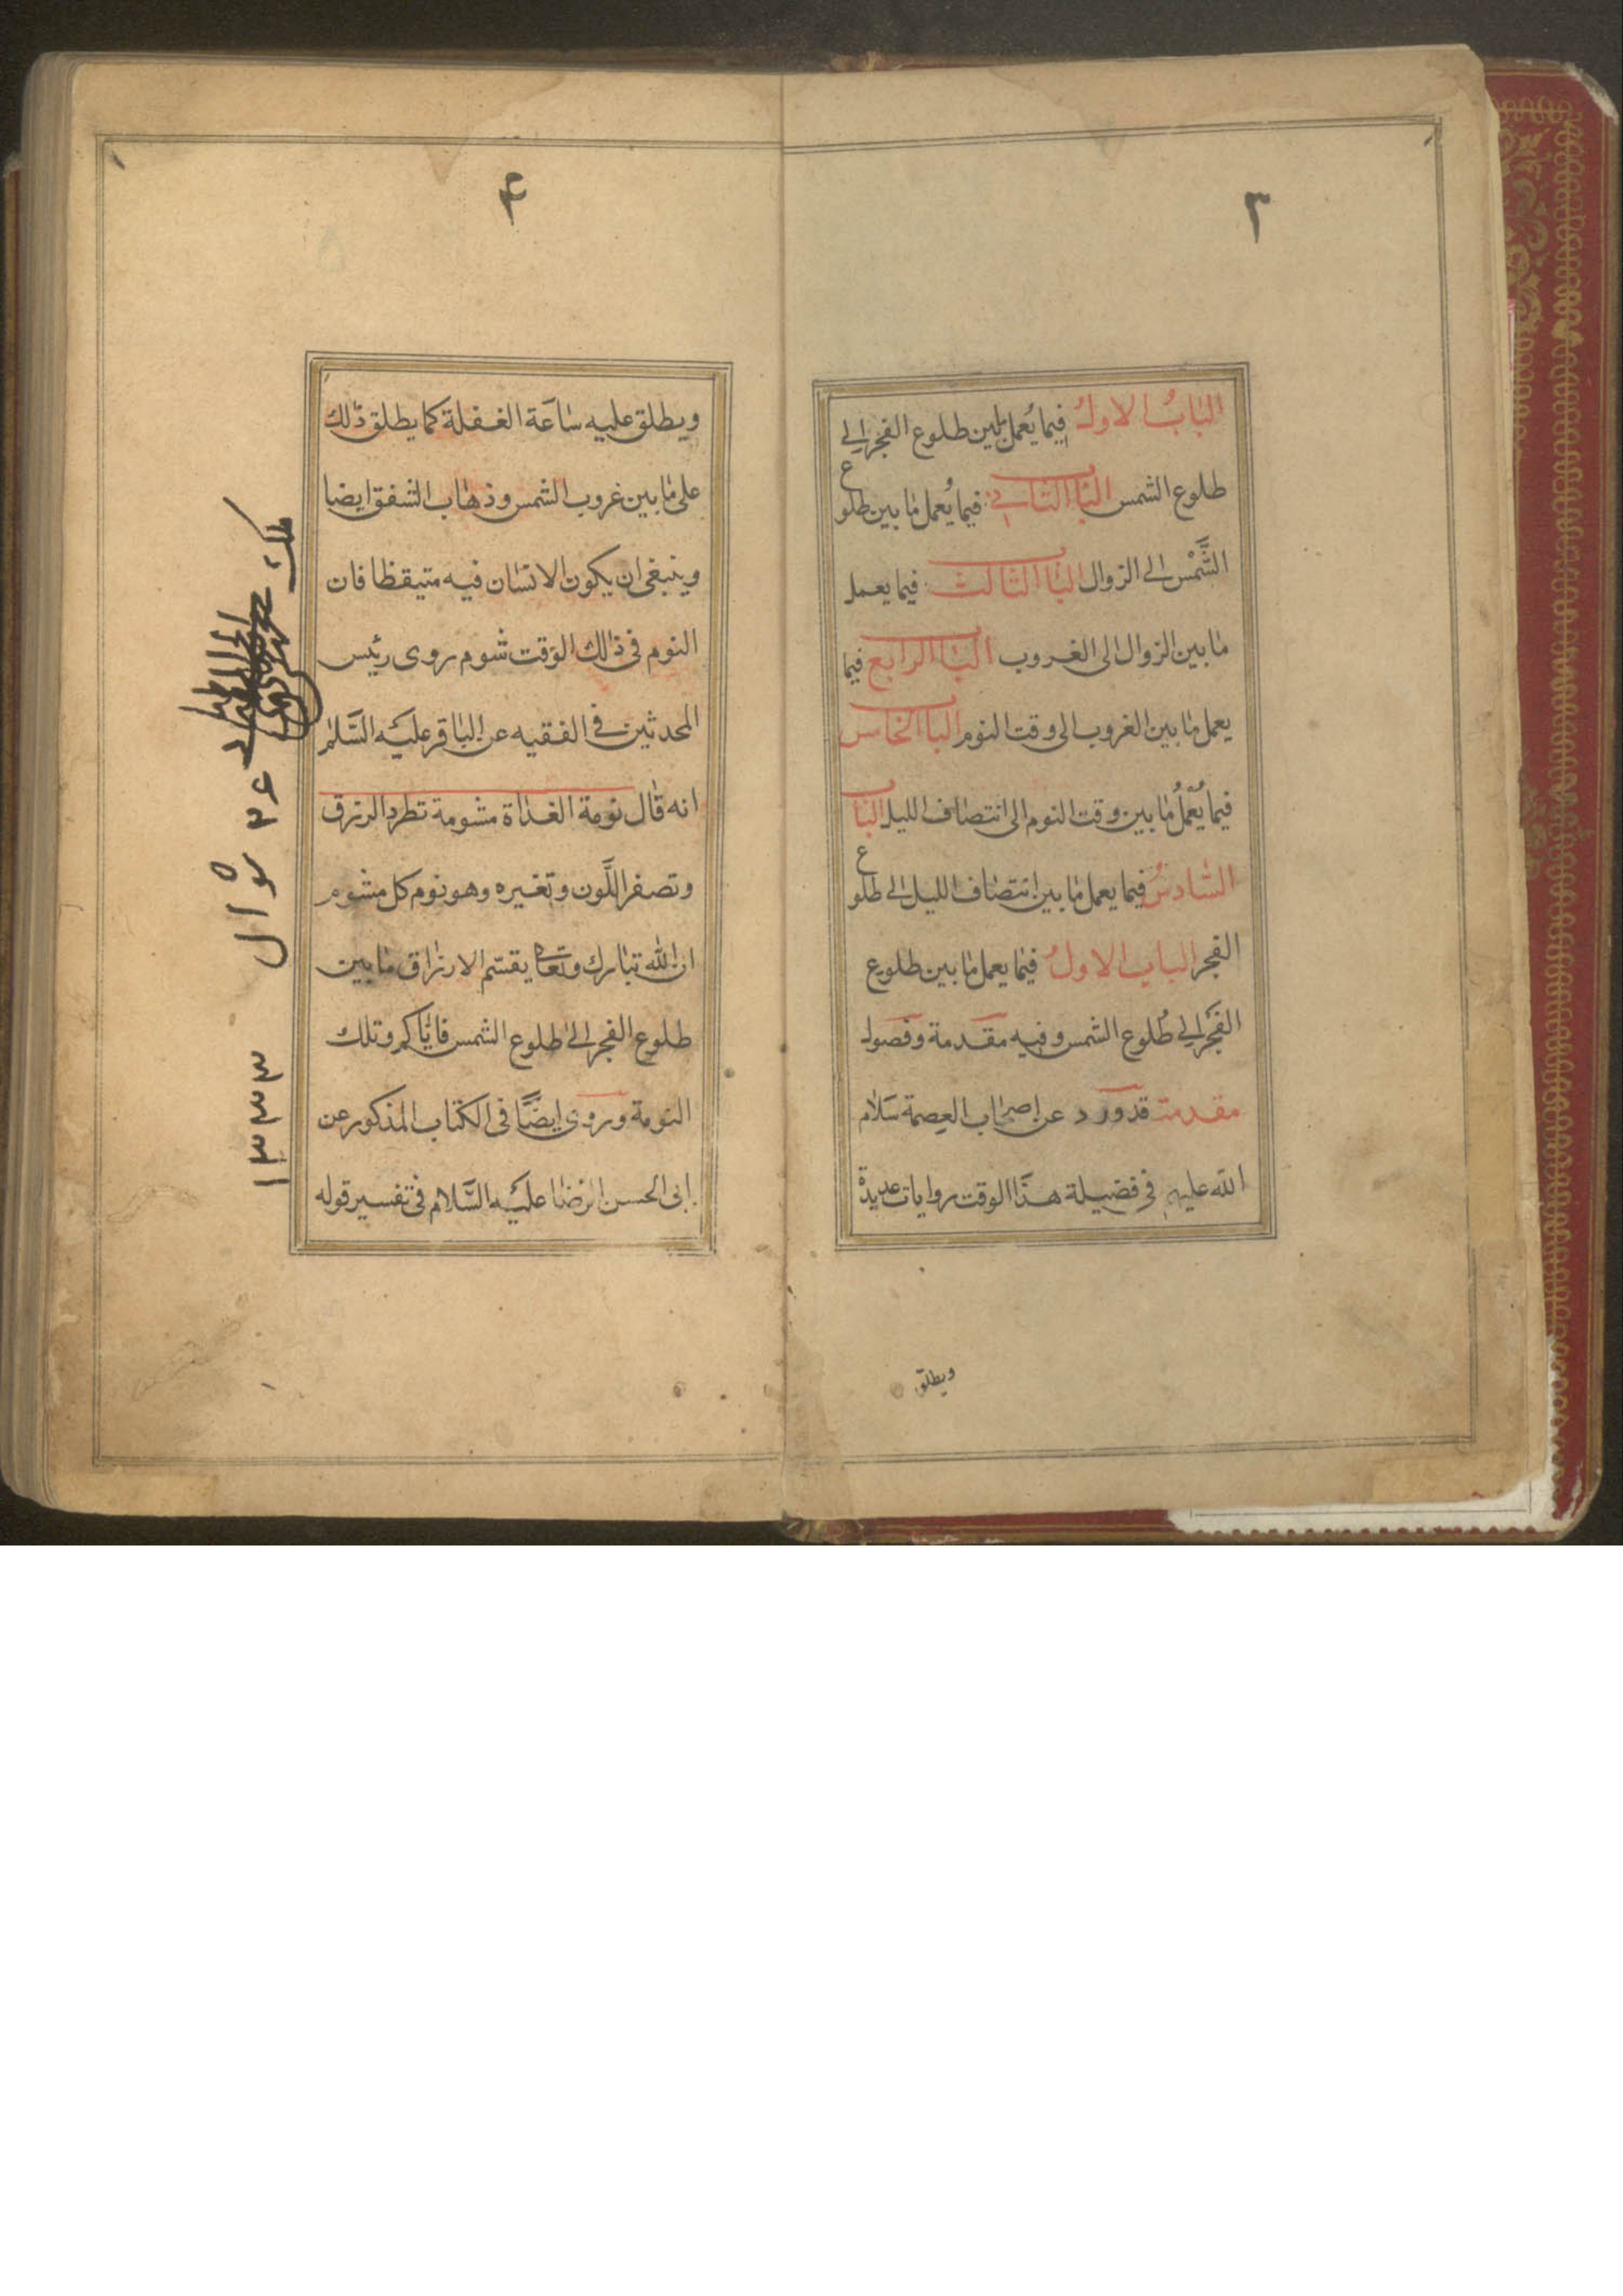 ٣
الباب الاول فيما يُعمل مابين طلوع الفجر الى
طلوع الشمس الباب الثانى فيما يُعمل ما بين طلوع
الشَّمْس الى الزوال الباب الثالث فيما يعمل
ما بين الزوال الى الغروب الباب الرابع فيما
يعمل ما بين الغروب الى وقت النوم الباب الخامس
فيما يُعملُ ما بين وقت النوم الى انتصاف الليل الباب
السادسُ فيما يعمل ما بين انتصاف الليل الى طلوع
الفجر الباب الاولُ فيما يعمل ما بين طلوع
الفَجر الى طُلوع الشمس وفيه مقدمة وفصول
مقدمة قد ورد عن اصحاب العِصمة سَلام
الله عليهم فى فضيلة هذا الوقت روايات عديدة
ويطلق
۴
ويطلق عليه سَاعَة الغفلة كما يطلق ذلك
على ما بين غروب الشمس وذهاب الشفق ايضا
وينبغى ان يكون الانسان فيه متيقظا فان
النوم فى ذلك الوقت شوم روى رئيس
المحدثين فى الفقيه عن الباقر عليه السَّلام
انه قال نومة الغداة مشومة تطرد الرزق
وتصفر اللَّون وتغيره وهو نوم كل مشوم
ان الله تبارك وتعالى يقسّم الارزاق ما بين
طلوع الفجر الى طلوع الشمس فايّاكم وتلك
النومة وروى ايضًا فى الكتاب المذكور عن
ابى الحسن الرضا عليه السَّلام فى تفسير قوله
شوال
١٣٣٣